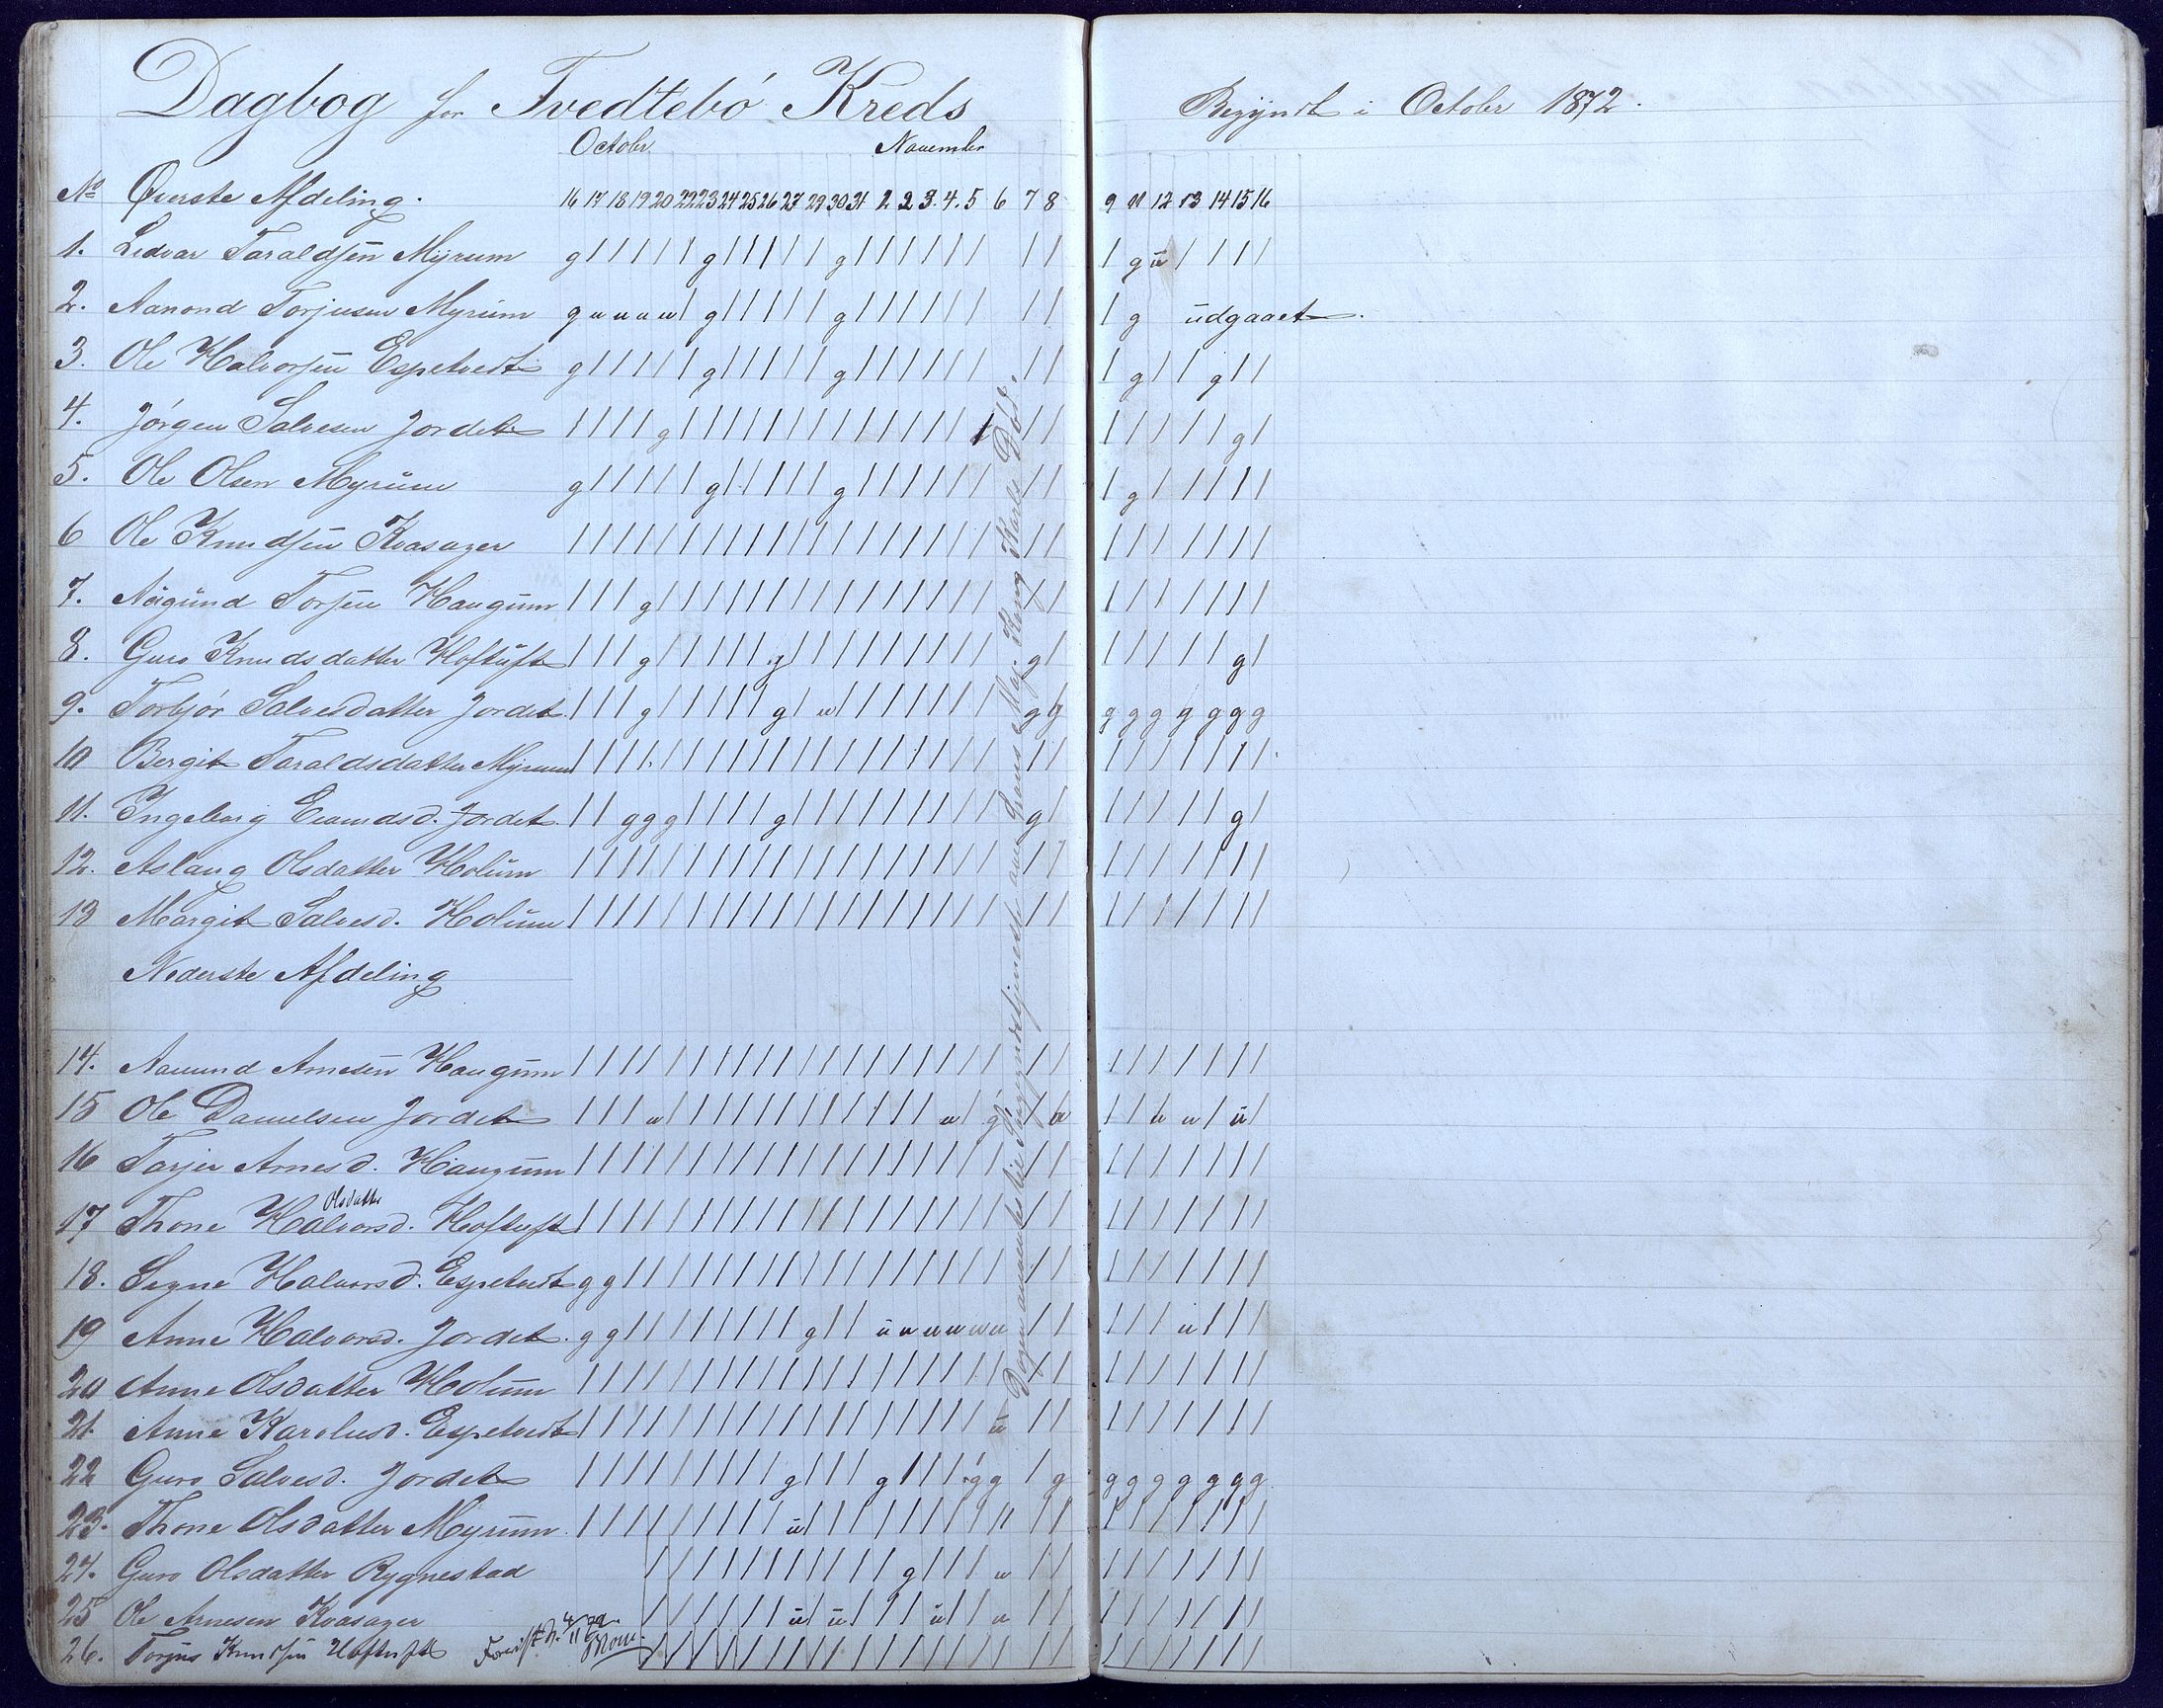 Dagbog for Tvedtebö Kreds
October November
No Överste Afdeling. 16 17 18 19 20 22 23 24 25 26 27 29 30 31 1 2 3. 4. 5 6 7 8
1. Ledvar Taraldsen Myrum g / / / / / g / / / / / g / / / / / / / /
2. Aanond Torjusen Myrum g u u u u / g / / / / / g / / / / / / / /
3. Ole Halvorsen Espetvedt g / / / / / g / / / / / g / / / / / / / /
4. Jörgen Salvesen Jordet / / / / g / / / / / / / / / / / / / / / /
5. Ole Olsen Myrum g / / / / / g / / / / / g / / / / / / / /
6 Ole Knudsen Kvasager / / / / / / / / / / / / / / / / / / / / /
7. Torsen Haugum / / / g / / / / / / / / / / / / / / / / /
8. Guro Knudsdatter Hoftuft / / / g / / / / / g / / / / / / / / / g /
9. Torbjör Salvesdatter Jordet / / / g / / / / / g / u / / / / / / / g g
10 Bergit Taraldsdatter Myrum / / / / / / / / / / / / / / / / / / / / /
11. Ingeborg Jordet. / / g g g / / / / g / / / / / / / / / g /
12. Aslaug Olsdatter Holum / / / / / / / / / / / / / / / / / / / / /
13 Margit Salvesd. Holum / / / / / / / / / / / / / / / / / / / / /
Nederste Afdeling
14. Aamund Arnesen Haugum / / / / / / / / / / / / / / / / / / / / /
15 Ole Danielsen Jordet / / / u / / / / / / / / / / / / u / g / u
16 Tarjer Arnesd. Haugum / / / / / / / / / / / / / / / / / / / / /
Olsdatter
17 Thone Halvorsd. Hoftuft / / / / / / / / / / / / / / / / / / / / /
18. Signe Halvorsd. Espetvedt g g / / / / / / / / / / / / / / / / / / /
19 Anne Halvorsd. Jordet. g g / / / / / / / / g / / u u u u u u / /
20 Anne Olsdatter Holum / / / / / / / / / / / / / / / / / / / / /
21. Anne Karolusd. Espetvedt / / / / / / / / / / / / / / / / / / u / /
22 Guro Salvesd. Jordet / / / / / / / / / g / / / g / / / g g / g
23. Thone Olsdatter Myrum. / / / / / / / / / u / / / / / / / / / / /
24. Guro Olsdatter Rygnestad / / / / / / / / / / / g / / / u / /
25 Ole Arnesen Kvasager / / / / / / u / u / / / u / / u / /
26. Torjus Knudsen Hoftuft / / / / / / / / / / / / / / / / / /
Dagen anvendes til Sörgegudstjeneste over Hans Maj. Kong Karls Död.
Begyndt i October 1872.
9 11 12 13 14 15 16
/ g u / / / /
/ g udgaaet.
/ g / / g / /
/ / / / / g /
/ g / / / / /
/ / / / / / /
/ / / / / / /
/ / / / / g /
g g g g g g g
/ / / / / / /
/ / / / / g /
/ / / / / / /
/ / / / / / /
/ / / / / / /
/ / u u / u /
/ / / / / / /
/ / / / / / /
/ / / / / / /
/ / / u / / /
/ / / / / / /
/ / / / / / /
g g g g g g g
/ / / / / / /
/ / / / / / /
/ / / / / / /
/ / / / / / /